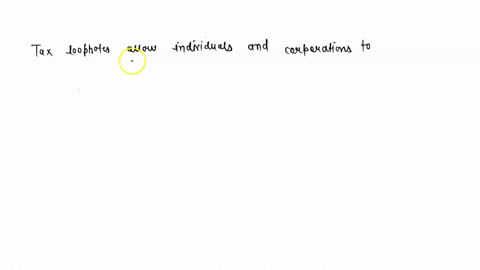 Tax loopholes allow individuals and corporations to